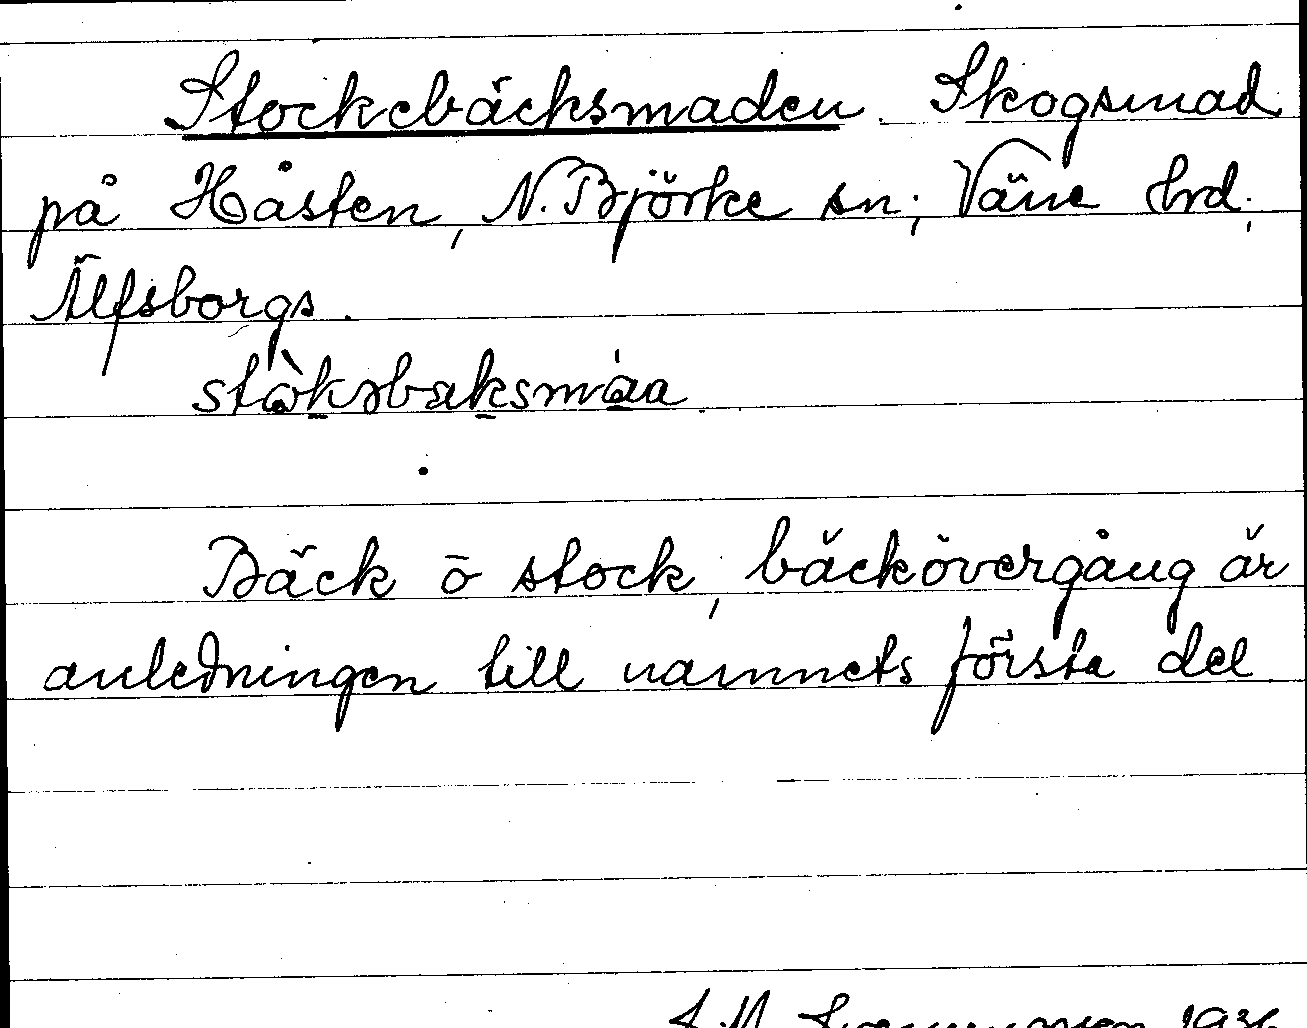 Stockebäcksmaden. Skogsmad
på Håsten, N. Björke sn; Väne hrd;
Älfsborgs.
Bäck o stock, bäckövergång är
anledningen till namnets första del